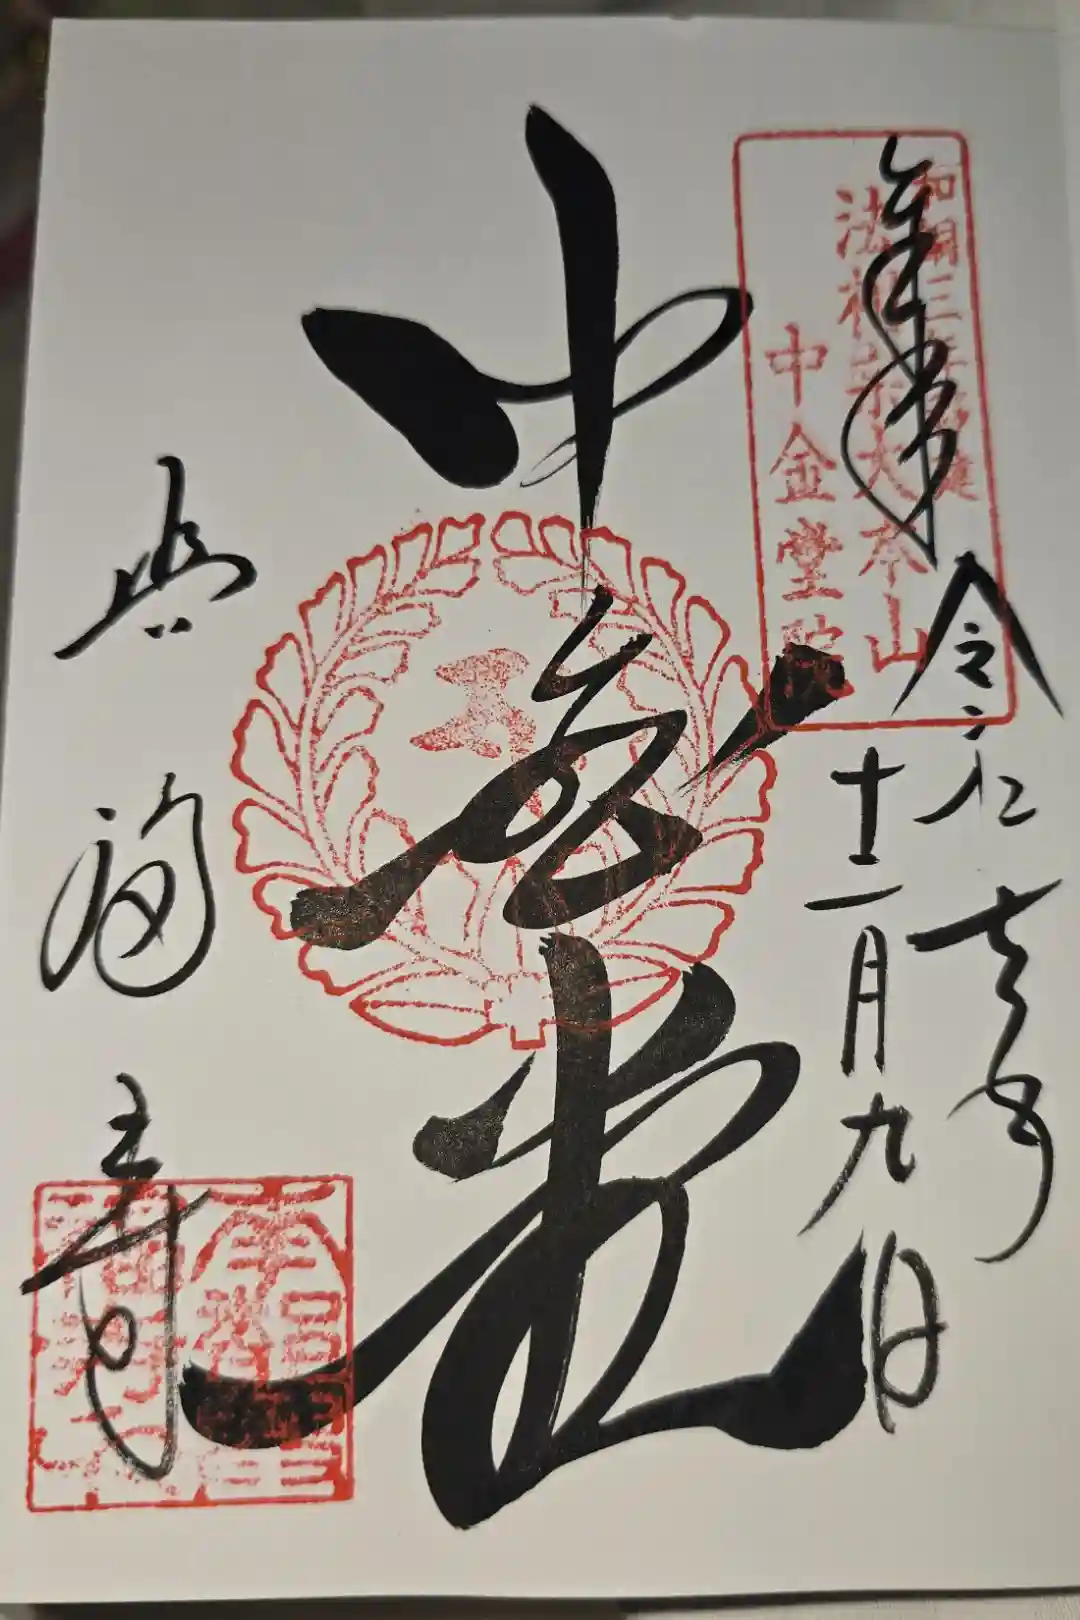 奉拝
令和七年
十二月九日
和銅三年創建
法相宗大本山
中金堂院
中金堂
興福寺